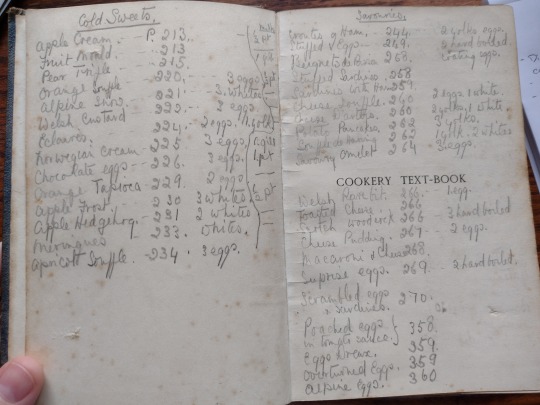 Cold Sweets.
Apple Cream - P. 213.
Fruit Mould. - 213
Pear Trifle - 215.
Orange Souffle - 220. 2 eggs
Alpine Snow. 221. 3 whites
Welsh Custard 222. 2 eggs
Eclaires. 224. 2 eggs, 1 yolk
Norwegian Cream - 225 3 eggs
Chocolate eggs - 226. 2 eggs.
Orange Tapioca - 229. 2 eggs
Apple Frost. 230 3 whites
Apple Hedgehog - 231 2 whites
Meringues 233. whites.
Apricot Souffle. - 234. 3 eggs.
Savouries.
244. 2 yolks eggs.
Stuffed Eggs - 249. 2 hard boiled
258.
Stuffed Sardines 258
Sardines 259.
Cheese Souffle. 260 2 eggs 1 white.
Cheese 260 2 yolks, 1 white.
Potato 262 3 yolks.
Souffle 263 1 yolk. 2 whites
Savoury Omelet 264 3 eggs.
COOKERY TEXT-BOOK
Welsh Rarebit. 266. - 1 egg.
Toasted Cheese. 266
Scotch woodcock 266 - 3 hard boiled
Cheese Pudding. 267 - 2 eggs.
Macaroni & Cheese 268.
Suprise eggs. 269 - 2 hard boiled.
Scrambled eggs
" " Sardines. 270.
Poached eggs } 358.
in tomato sauce.
Eggs 359.
Overturned Eggs. 359
Alpine eggs. 360